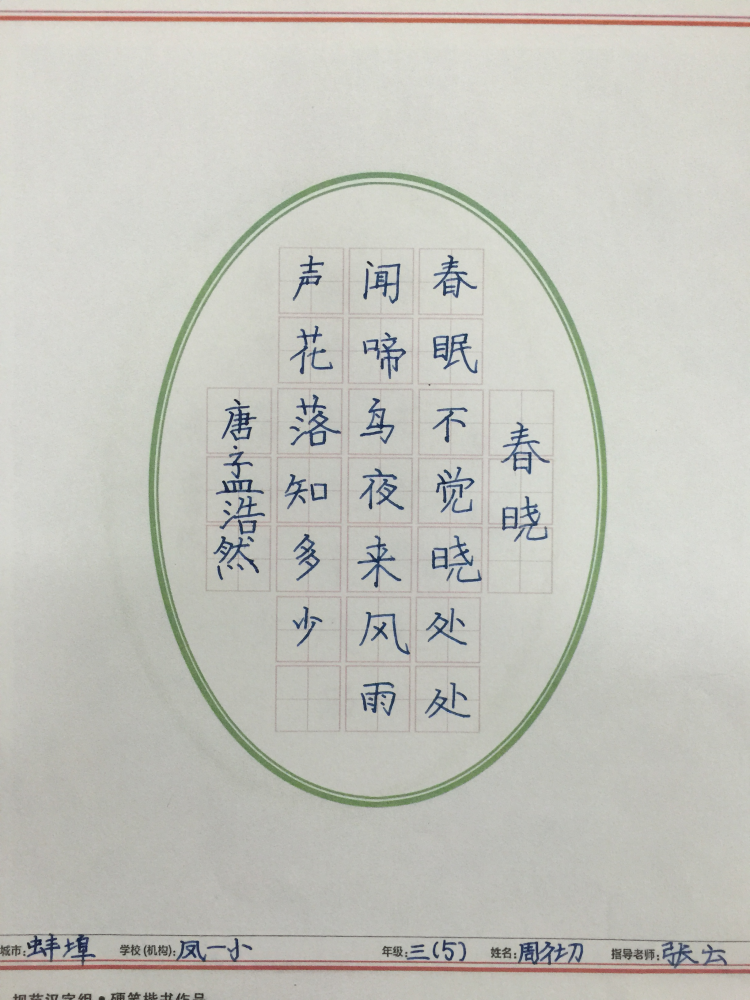 春晓
春眠不觉晓处处
闻啼鸟夜来风雨
声花落知多少
唐孟浩然
城市:蚌埠 学校(机构):凤一小 年级:三(5) 姓名:周 指导老师:张云
规范汉字组·硬笔楷书作品